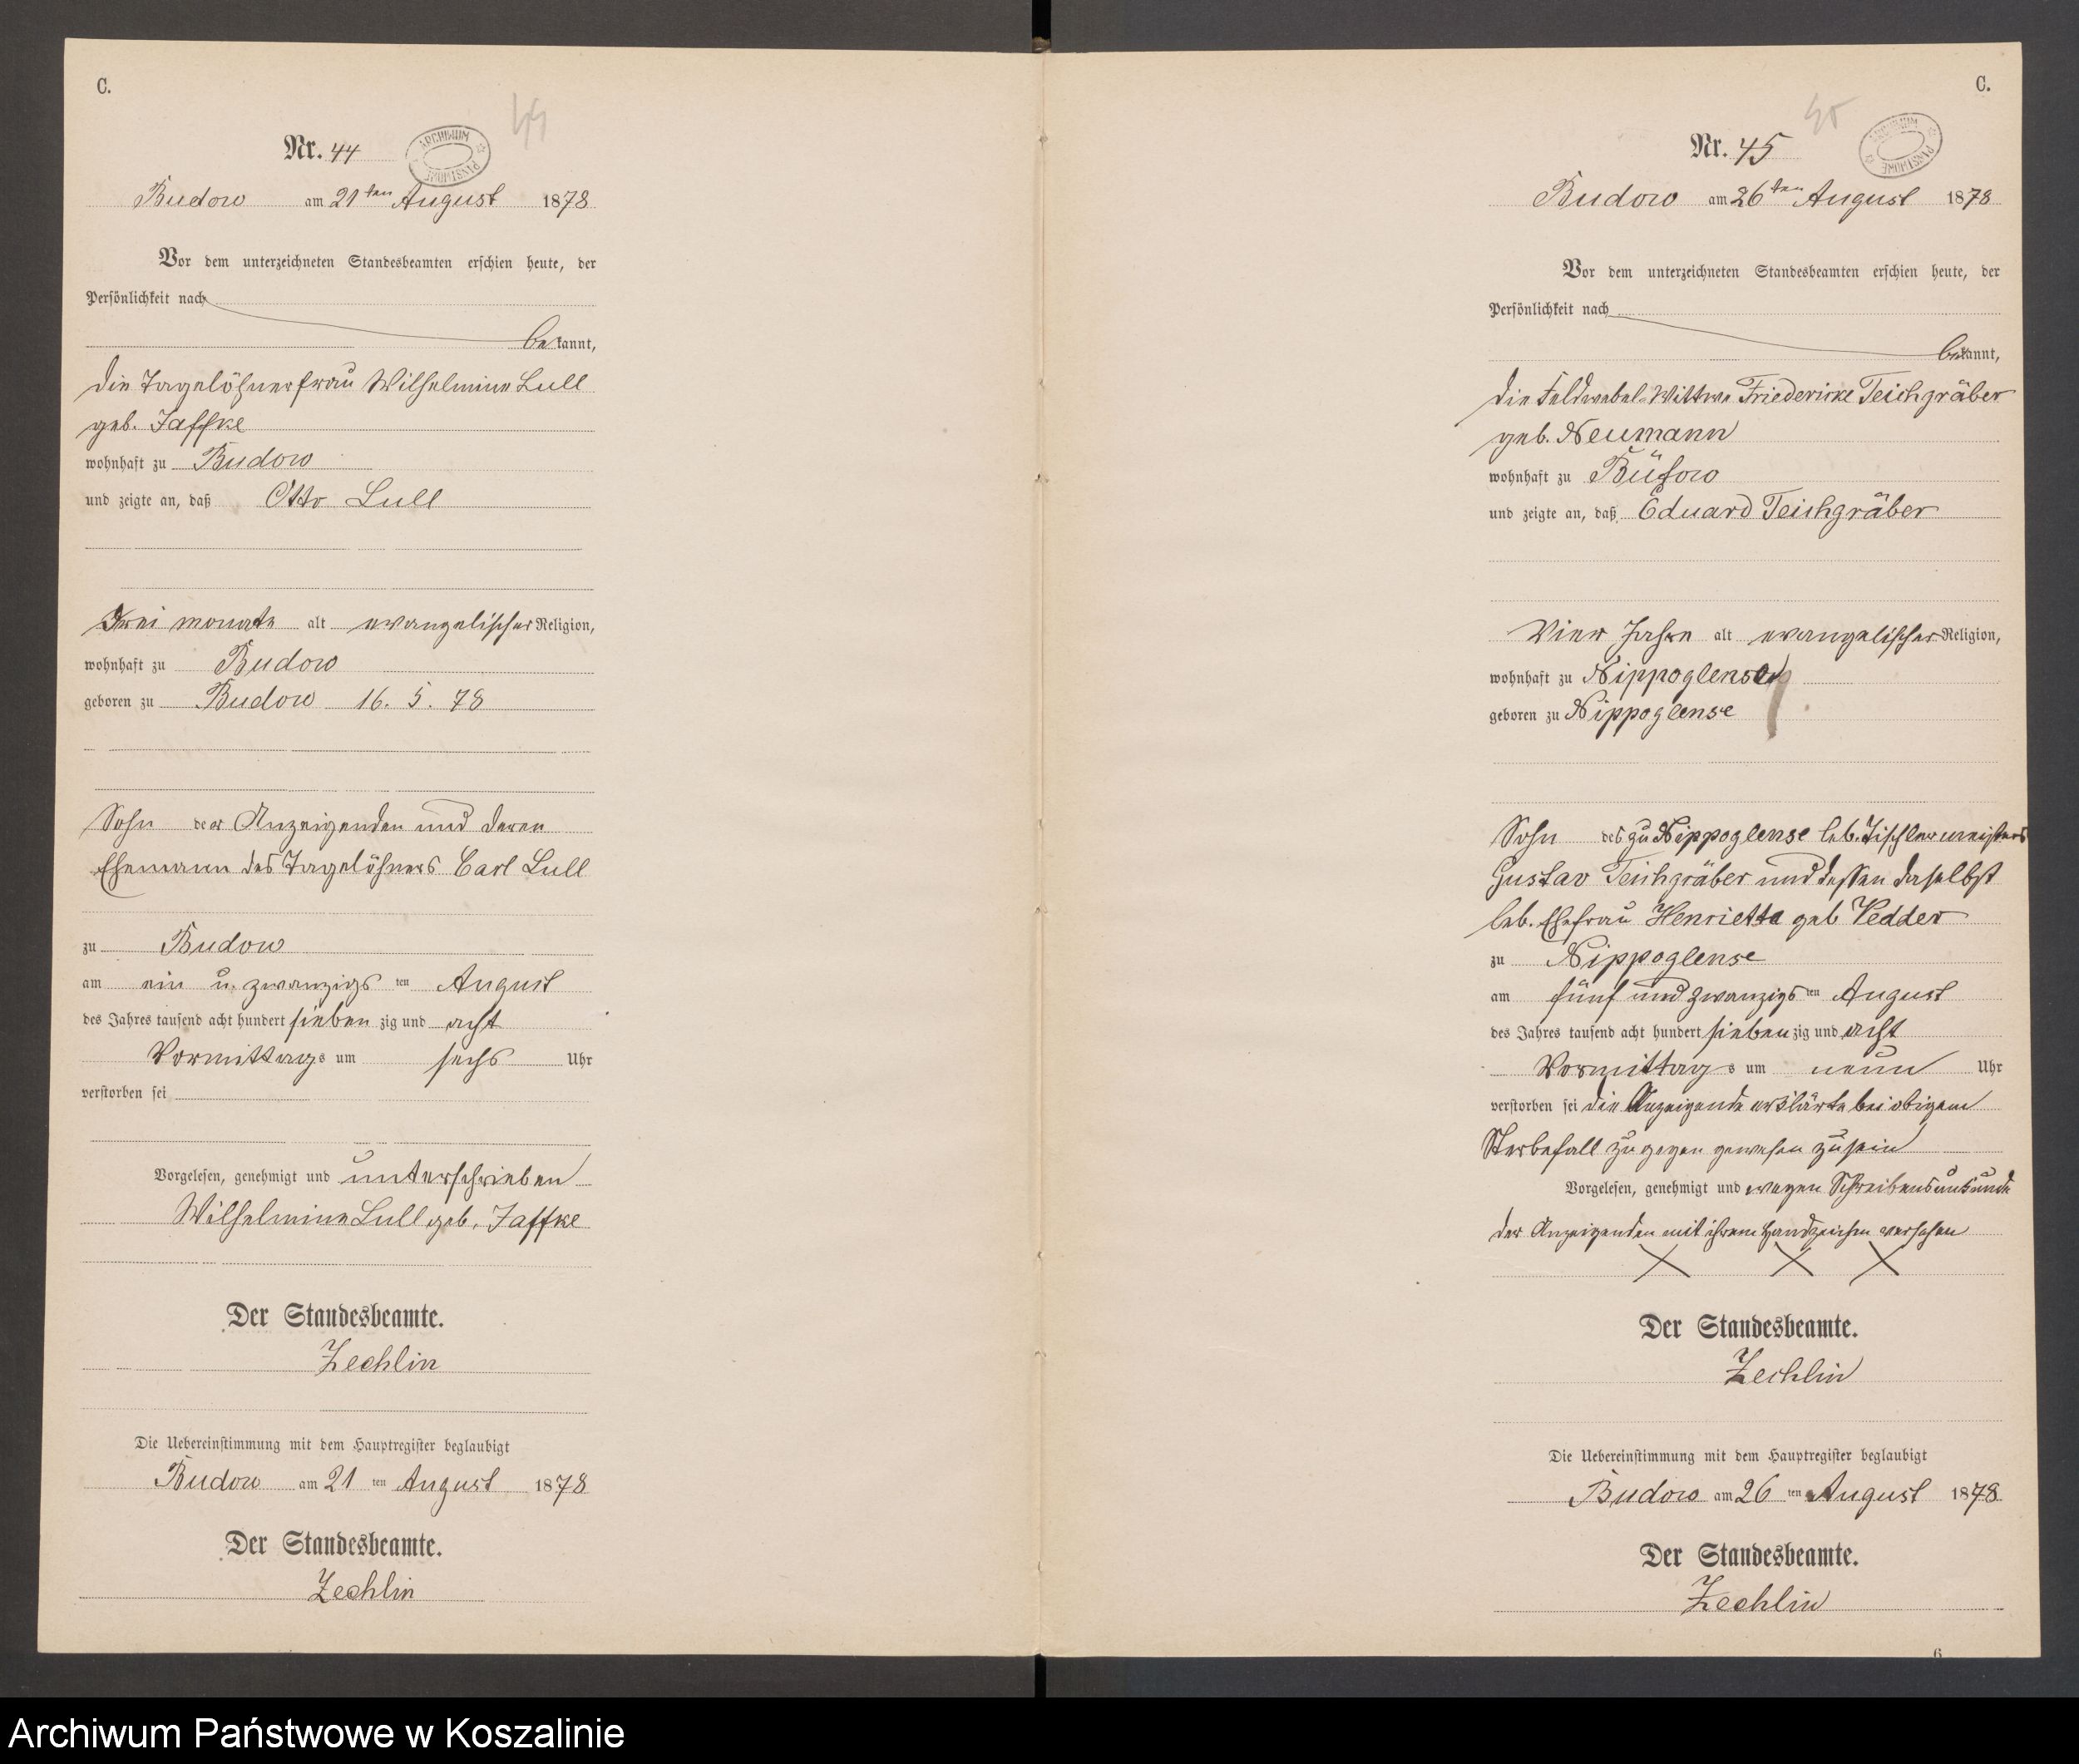 C.
44
Nr. 44
ARCHIWUM PAŃSTWOWE
Budow am 21ten August 1878
Vor dem unterzeichneten Standesbeamten erschien heute, der
Persönlichkeit nach
bekannt,
die Tagelöhnerfrau Wilhelmine Lull
geb. Jaffke
wohnhaft zu Budow
und zeigte an, daß Otto Lull
Drei monate alt evangelischer Religion,
wohnhaft zu Budow
geboren zu Budow 16. 5. 78
Sohn der Anzeigenden und deren
Ehemann des Tagelöhners Carl Lull
zu Budow
am ein u. zwanzigs ten August
des Jahres tausend acht hundert sieben zig und acht
Vormittags um sechs Uhr
verstorben sei
Vorgelesen, genehmigt und unterschrieben
Wilhelmine Lull geb. Jaffke
Der Standesbeamte.
Zechlin
Die Uebereinstimmung mit dem Hauptregister beglaubigt
Budow am 21 ten August 1878
Der Standesbeamte.
Zechlin
C.
45
Nr. 45
ARCHIWUM PAŃSTWOWE
Budow am 26ten August 1878
Vor dem unterzeichneten Standesbeamten erschien heute, der
Persönlichkeit nach
bekannt,
die Feldwebel-Wittwe Friedericke Teichgräber
geb. Neumann
wohnhaft zu
und zeigte an, daß Eduard Teichgräber
Vier Jahre alt evangelischer Religion,
wohnhaft zu Nippoglense
geboren zu Nippoglense
Sohn des zu Nippoglense leb. Tischlermeisters
Gustav Teichgräber und dessen daselbst
leb. Ehefrau Henriette geb Vedder
zu Nippoglense
am fünf und zwanzigs ten August
des Jahres tausend acht hundert sieben zig und acht
Vormittags um neun Uhr
verstorben sei die Anzeigende erklärte bei obigem
Sterbefall zugegen gewesen zu sein
Vorgelesen, genehmigt und wegen Schreibensunkunde
der Anzeigenden mit ihrem Handzeichen versehen
X X X
Der Standesbeamte.
Zechlin
Die Uebereinstimmung mit dem Hauptregister beglaubigt
Budow am 26 ten August 1878
Der Standesbeamte.
Zechlin
6
Archiwum Państwowe w Koszalinie